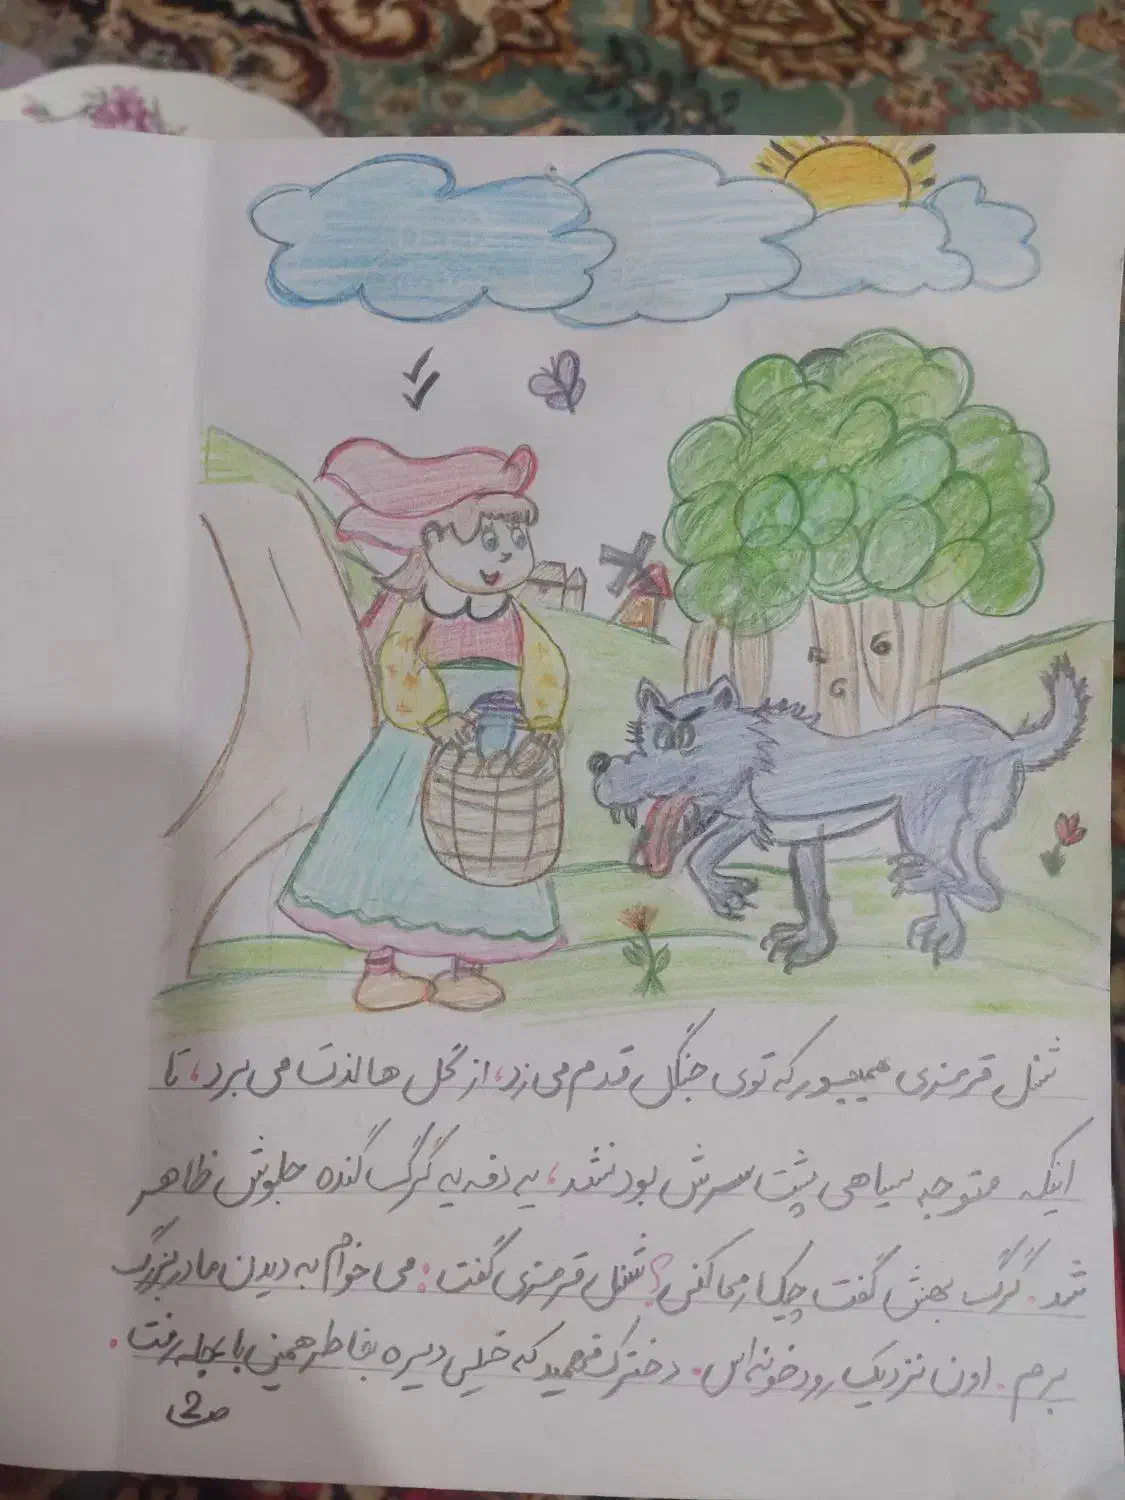 شنل قرمزی همیجور که توی جنگل قدم می زد، از گل ها لذت می برد، تا
اینکه متوجه سیاهی پشت سرش بود نشد، یه دفه یه گرگ گنده جلوش ظاهر
شد. گرگ بهش گفت چیکار می کنی؟ شنل قرمزی گفت: می خوام به دیدن مادربزرگ
برم. اون نزدیک رودخونه اس. دخترک فهمید که خیلی دیره بخاطر همین با عجله رفت.
ص2